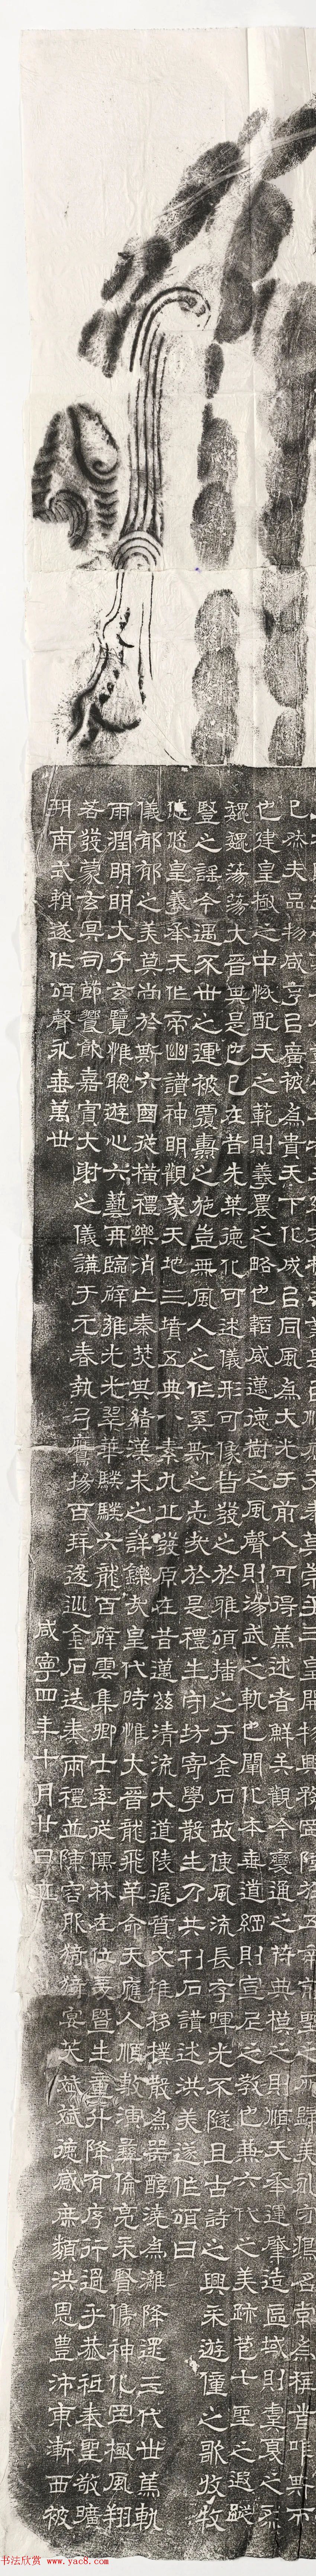 已然夫品物咸亨以廣被為貴天下化成以同風為大光于前人可得蕙述者鮮矣觀今變通之符典模之則順天承運肇造區域則虞夏之烈
也建皇極之中恢配天之範則羲農之略也韜威邁德樹之風聲則湯武之軌也闡化本垂道綱則宣尼之教也兼六代之美跡苞七聖之遐蹤
巍巍蕩蕩大晉其是也已在昔先葉德化可述儀形可像皆發之於雅頌播之于金石故使風流長孚暉光不隧且古詩之興采遊僮之歌收牧
豎之謡今遇不世之運被覆燾之施豈無風人之作奚斯之志哉於是禮生守坊寄學散生乃共刊石讚述洪美遂作頌曰
悠悠皇羲承天作帝幽讚神明觀象天地三墳五典八素九丘發原在昔邁茲清流大道陵遲質文推移樸散為器醇澆為漓降逮三代世篤軌
儀郁郁之美莫尚於斯六國從橫禮樂消亡秦焚其緒漢未之詳鑠哉皇代時惟大晉龍飛革命天應人順敷演彝倫亮采賢儁神化罔極風翔
雨潤明明大子玄覽惟聰遊心六藝再臨辟雍光光翠華騤騤六飛百辟雲集卿士率從儒林在位爰暨生童升降有序行過乎恭祗奉聖敬曠
若發蒙玄冥司節饗飲嘉賓大射之儀講于元春執弓鷹揚百拜逡巡金石迭奏兩禮並陳容服猗猗宴笑斌斌德感庶類洪恩豊沛東漸西被
朔南式賴遂作頌聲永垂萬世 咸寧四年十月廿日立
书法欣赏 www.yac8.com